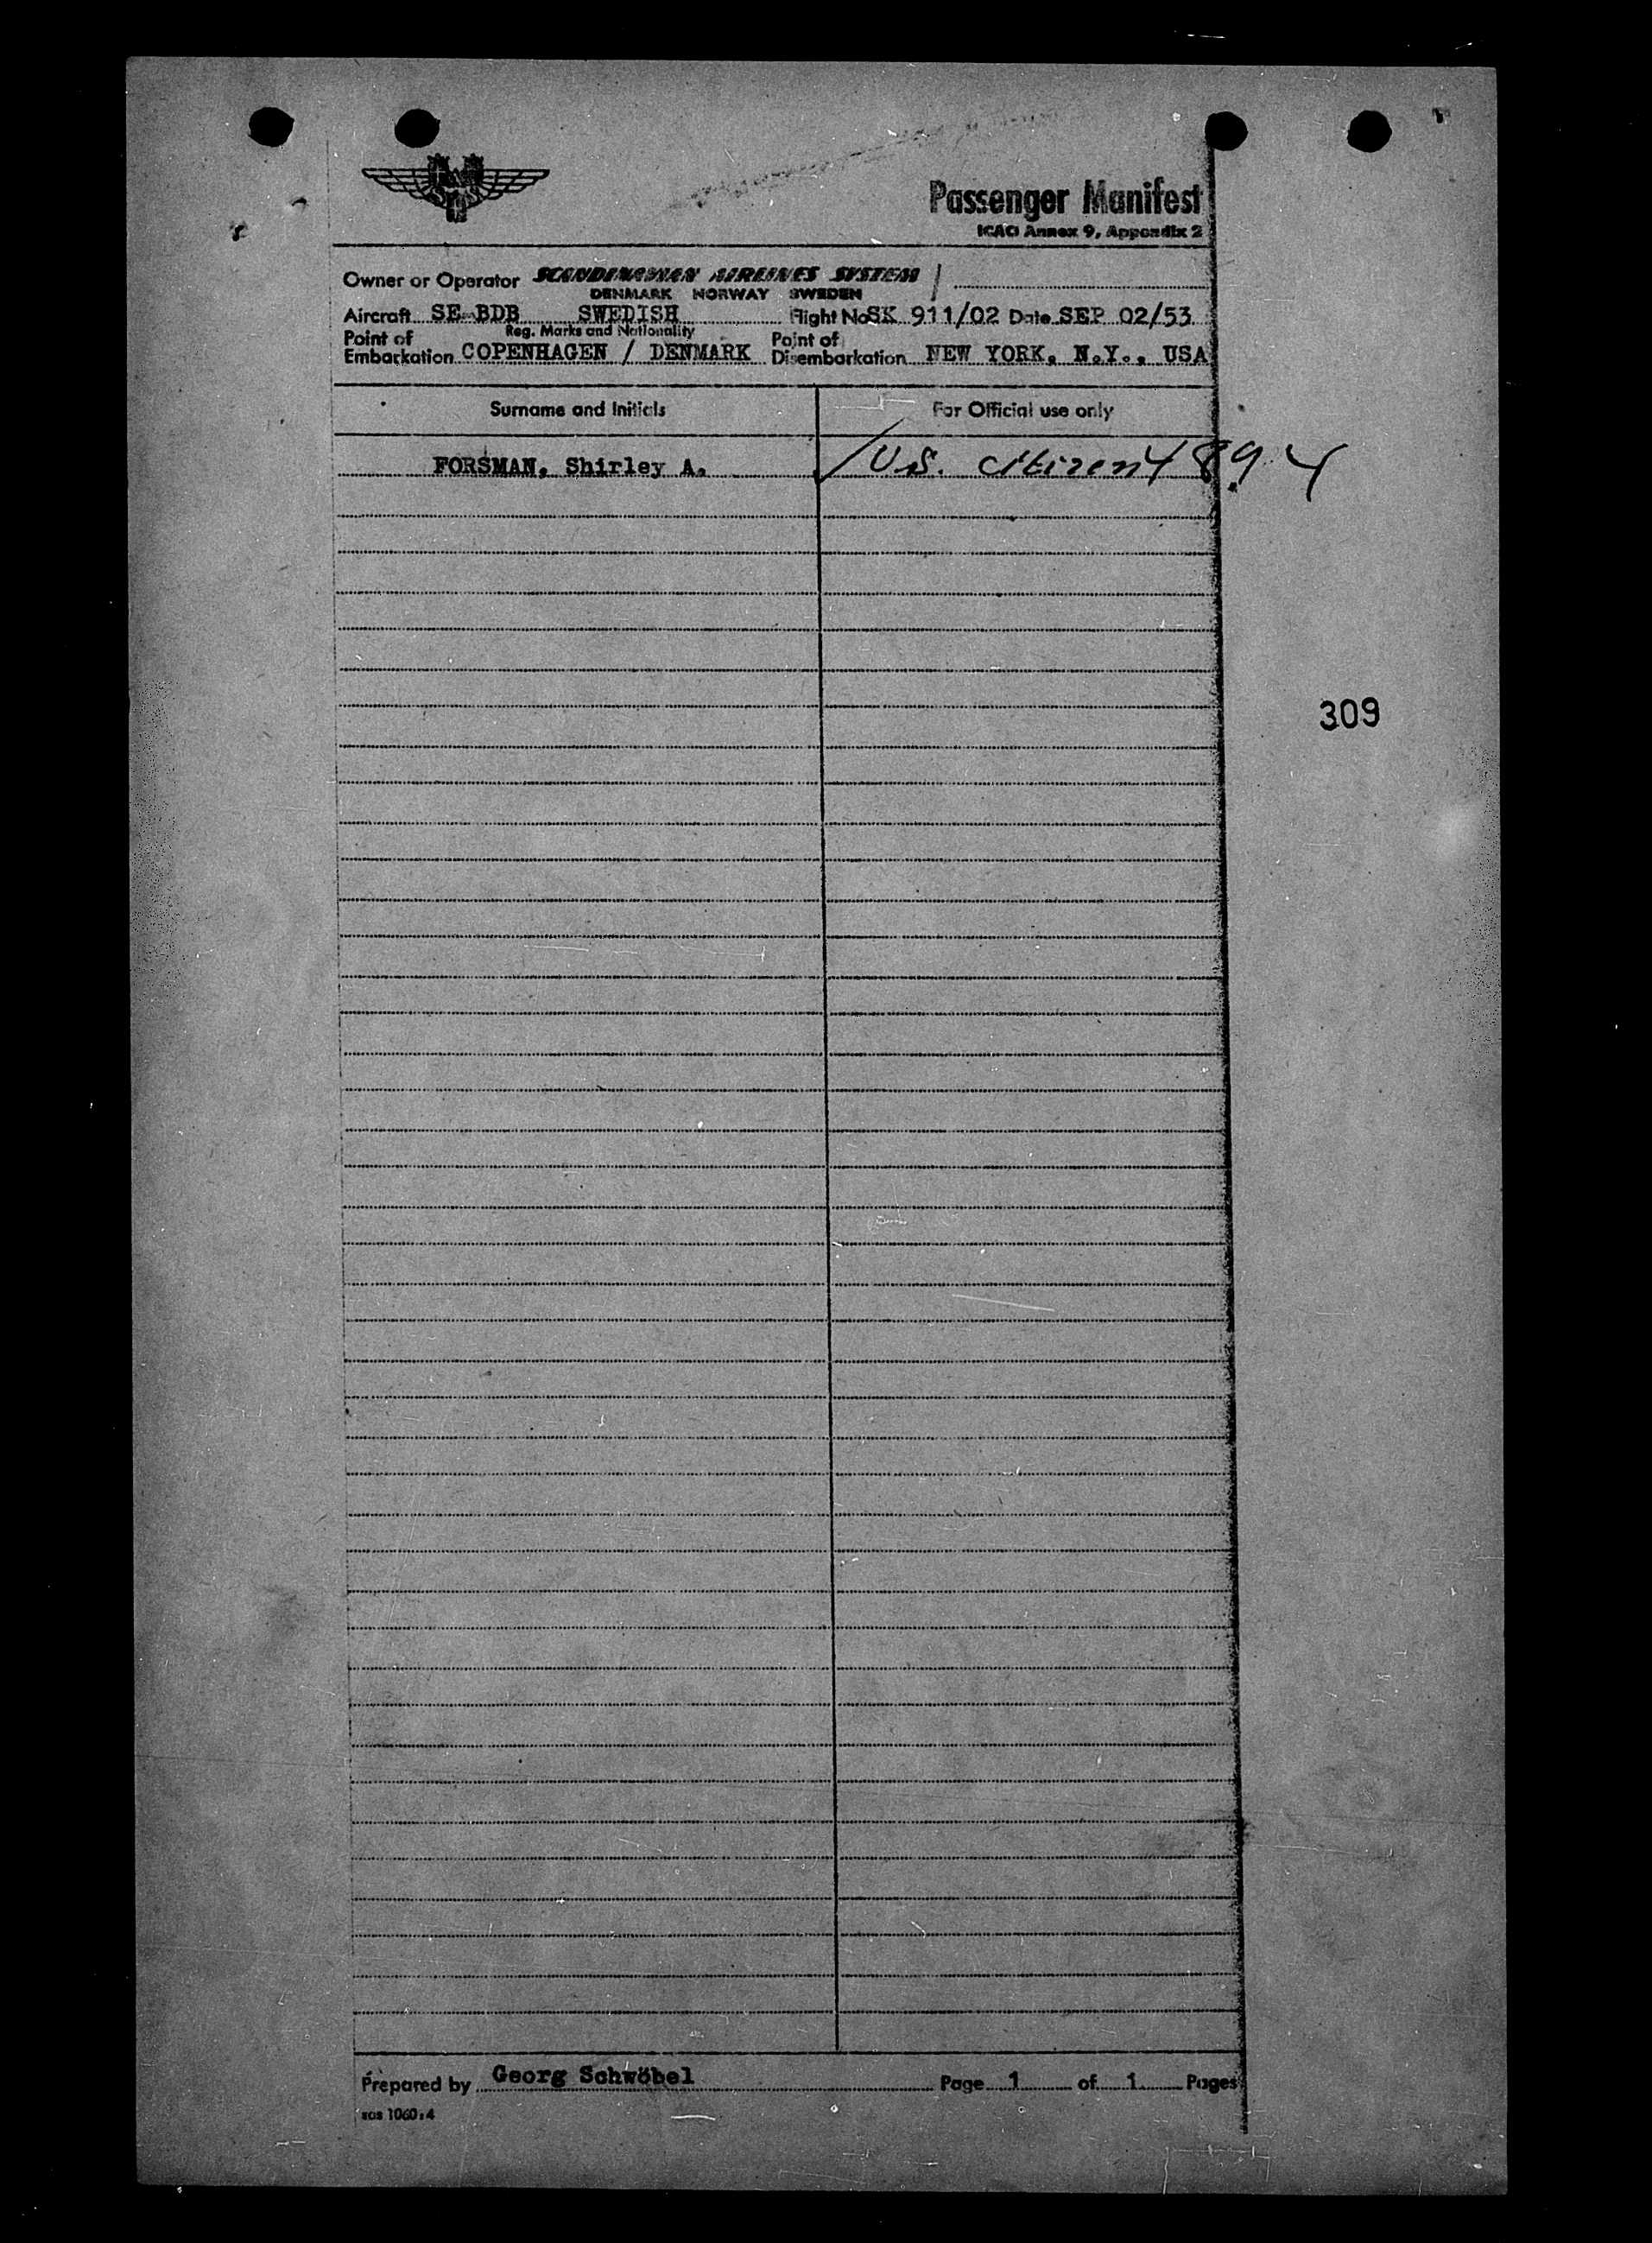 SAS
Passenger Manifest
ICAO Annex 9, Appendix 2
Owner or Operator SCANDINAVIAN AIRLINES SYSTEM
DENMARK NORWAY SWEDEN
Aircraft SE-BDB SWEDISH Flight No SK 911/02 Date SEP 02/53
Reg. Marks and Nationality
Point of Embarkation COPENHAGEN / DENMARK Point of Disembarkation NEW YORK, N.Y., USA
Surname and Initials For Official use only
FORSMAN, Shirley A. U.S. citizen
309
Prepared by Georg Schwöbel Page 1 of 1 Pages
SAS 1060:4